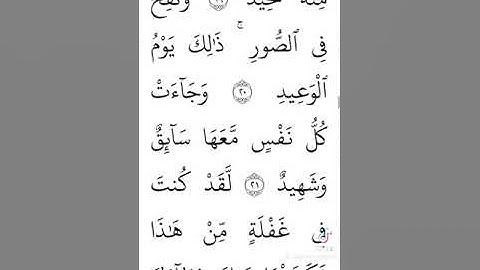 مِنْهُ تَحِيدُ ١٩ وَنُفِخَ
فِى ٱلصُّورِ ۚ ذَٰلِكَ يَوْمُ
ٱلْوَعِيدِ ٢٠ وَجَآءَتْ
كُلُّ نَفْسٍ مَّعَهَا سَآئِقٌ
وَشَهِيدٌ ٢١ لَّقَدْ كُنتَ
فِى غَفْلَةٍ مِّنْ هَٰذَا